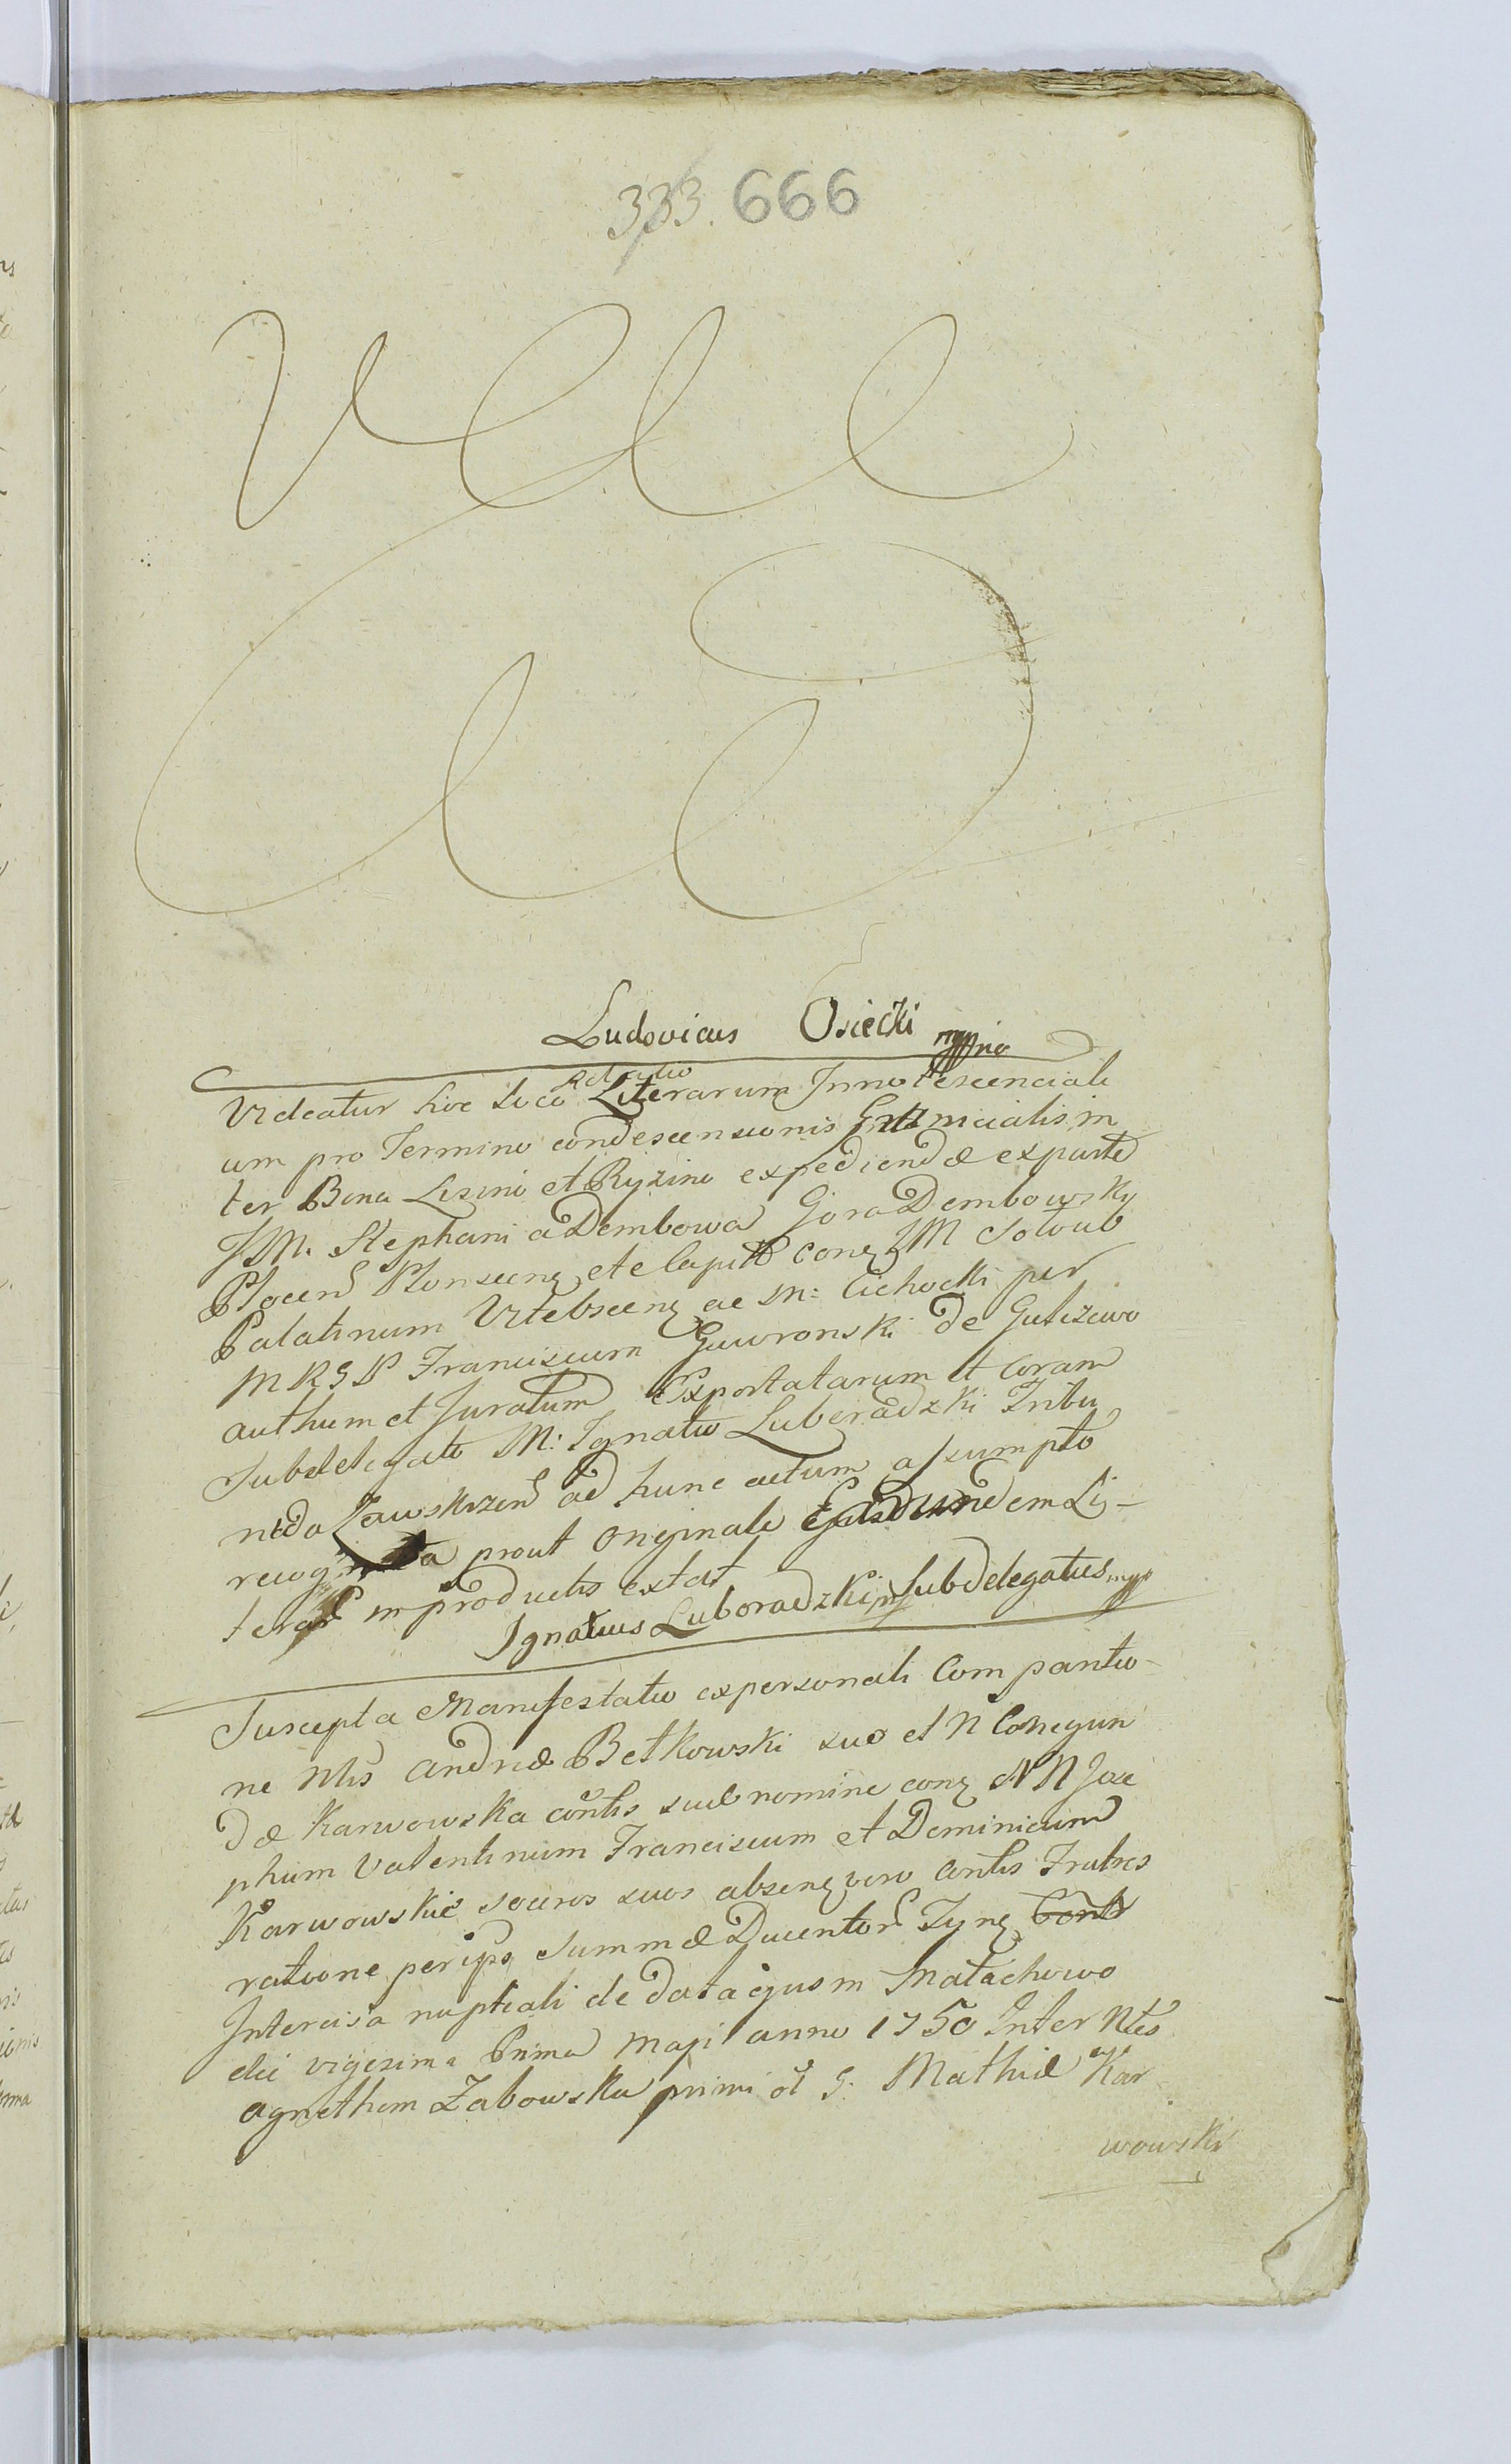 333. 666
Ludovicus Osiecki mppria
Relatio
Videatur hoc Loco Literarum Innotescenciali
um pro Termino condescensionis Granicialis in
ter Bona Lisino et Ryzino expediendæ exparte
JM. Stephani a Dembowa Gora Dembowsky
Płocen Plonscen et Capit con JM Sołoub
Palatinum Vitebscen ac M: Cichocki per
M R S P Franciscum Gawronski de Gulczewo
authum et Juratum Exportatarum et Coram
Subdelegato M: Ignatio Luberadzki Tribu
nida Zawskrzen ad hunc actum assumpto
recognita prout Originale Earundem Li-
terar in productis extat
Ignatius Luboradzki Subdelegatus mpp
Suscepta Manifestatio expersonali Comparitio-
ne Nlis Andreæ Betkowski suo et N Conegun
dæ Karwowska contlis suæ nomine con NN Jose
phum Valentinum Franciscum et Dominicum
Karwowskie soceros suos absen vero contlis Fratres
ratione per ipso Summæ Ducentor Tyn Contr
Intercisa nuptiali de data ejus in Małachowo
die vigesima Prima Maji anno 1750 Inter Nles
Agnethem Żabowska primi ol G: Mathiæ Kar
wowski